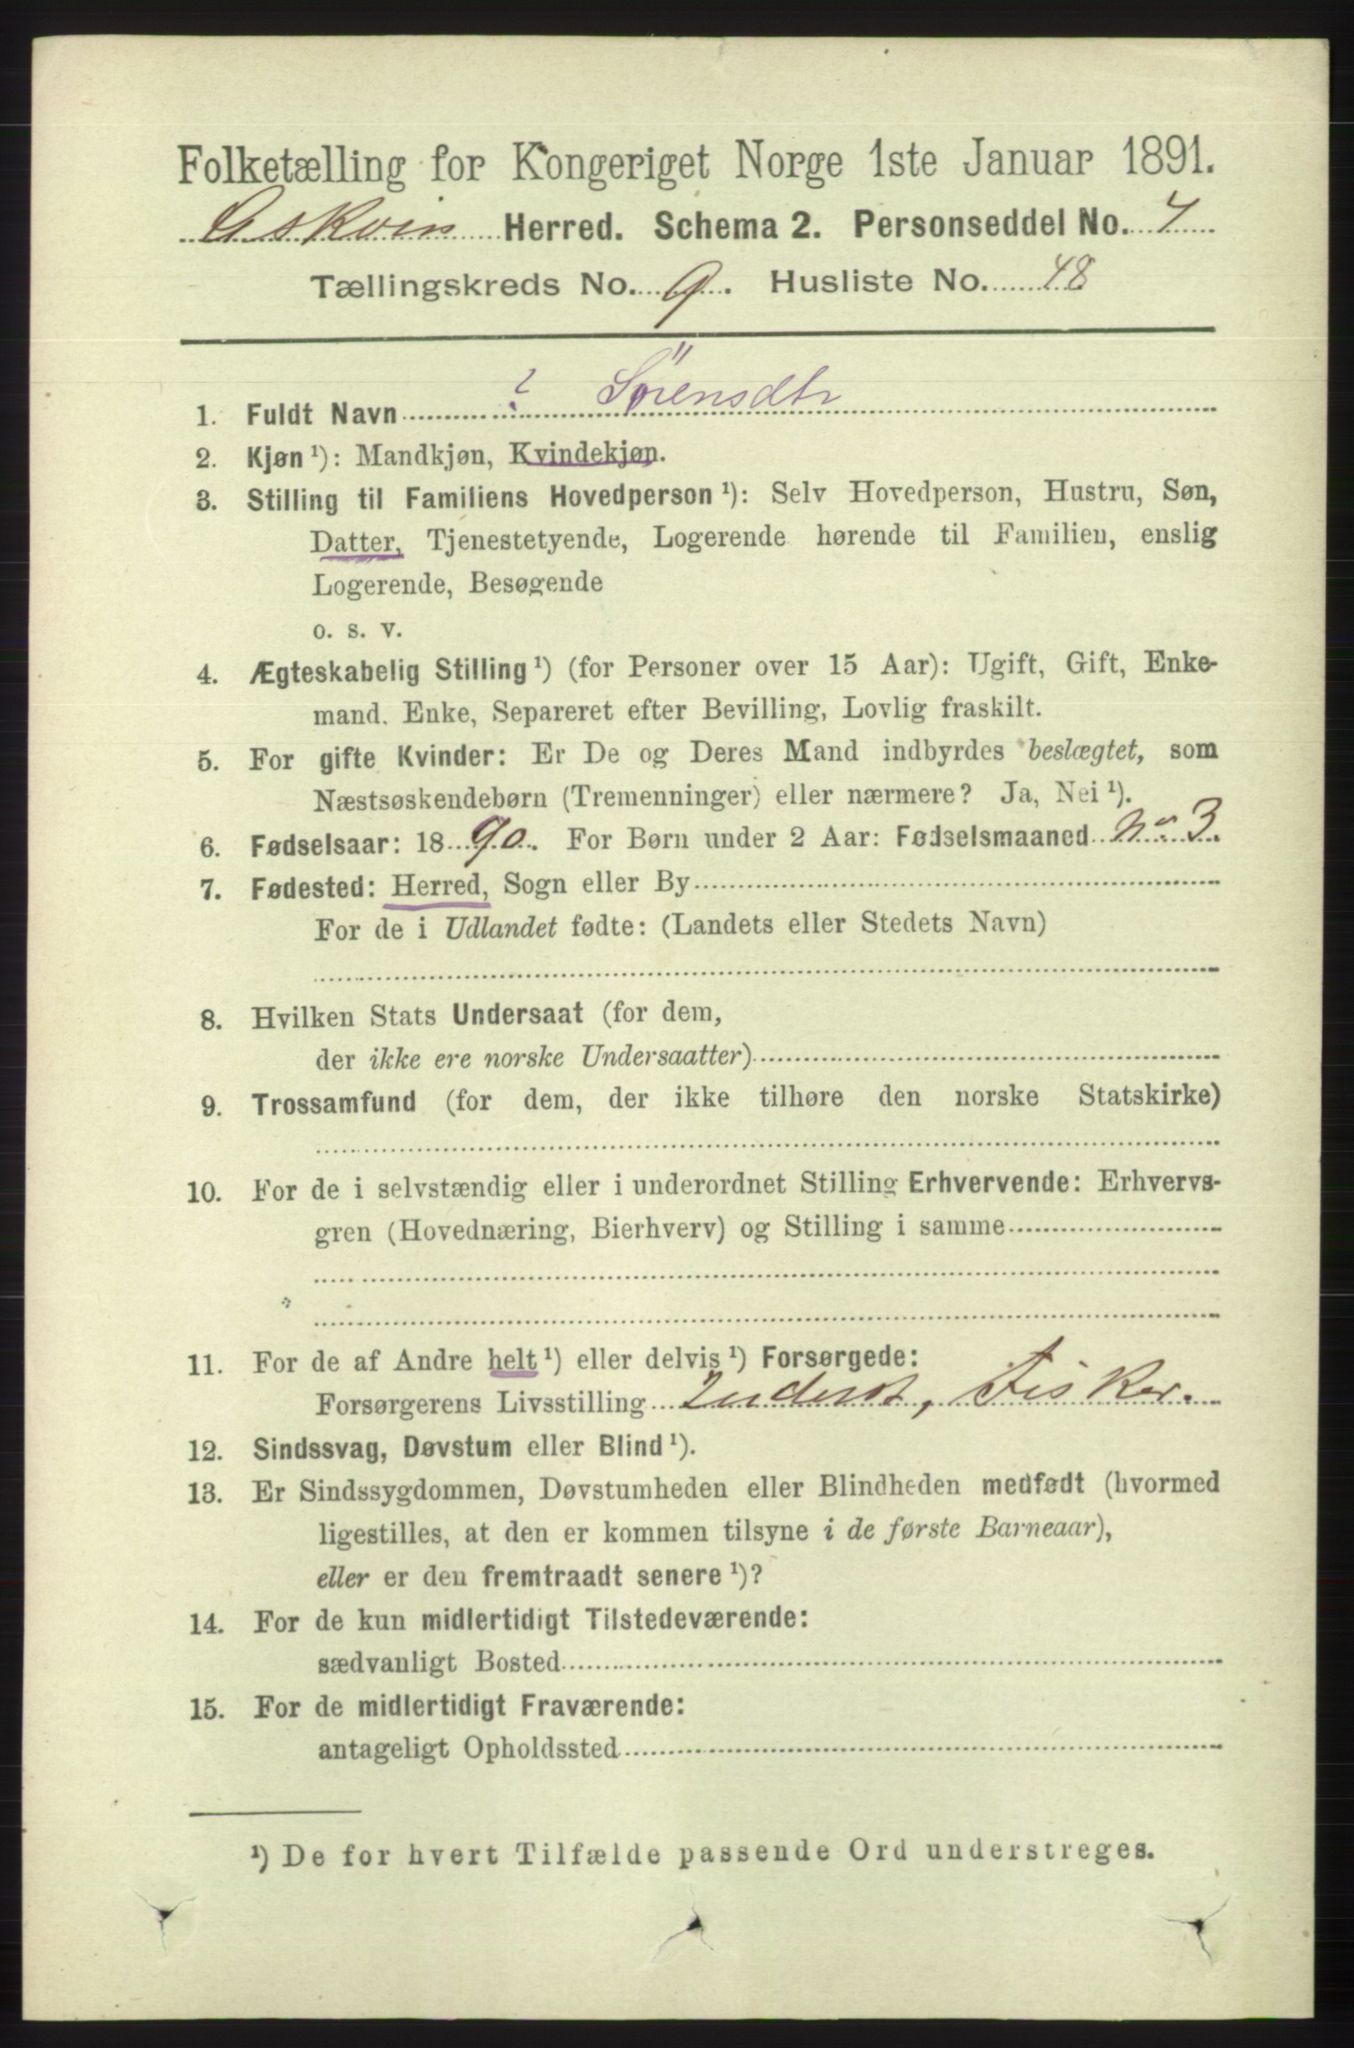 Folketælling for Kongeriget Norge 1ste Januar 1891.
Askvin Herred. Schema 2. Personseddel No. 4
Tællingskreds No. 9. Husliste No. 48
1. Fuldt Navn ? Sörensdtr
2. Kjøn ¹): Mandkjøn, Kvindekjøn.
3. Stilling til Familiens Hovedperson ¹): Selv Hovedperson, Hustru, Søn,
Datter, Tjenestetyende, Logerende hørende til Familien, enslig
Logerende, Besøgende
o. s. v.
4. Ægteskabelig Stilling ¹) (for Personer over 15 Aar): Ugift, Gift, Enke-
mand. Enke, Separeret efter Bevilling, Lovlig fraskilt.
5. For gifte Kvinder: Er De og Deres Mand indbyrdes beslægtet, som
Næstsøskendebørn (Tremenninger) eller nærmere? Ja, Nei ¹).
6. Fødselsaar: 1890. For Børn under 2 Aar: Fødselsmaaned No 3.
7. Fødested: Herred, Sogn eller By
For de i Udlandet fødte: (Landets eller Stedets Navn)
8. Hvilken Stats Undersaat (for dem,
der ikke ere norske Undersaatter)
9. Trossamfund (for dem, der ikke tilhøre den norske Statskirke)
10. For de i selvstændig eller i underordnet Stilling Erhvervende: Erhvervs-
gren (Hovednæring, Bierhverv) og Stilling i samme
11. For de af Andre helt ¹) eller delvis ¹) Forsørgede:
Forsørgerens Livsstilling Inderst, Fisker.
12. Sindssvag, Døvstum eller Blind ¹).
13. Er Sindssygdommen, Døvstumheden eller Blindheden medfødt (hvormed
ligestilles, at den er kommen tilsyne i de første Barneaar),
eller er den fremtraadt senere ¹)?
14. For de kun midlertidigt Tilstedeværende:
sædvanligt Bosted
15. For de midlertidigt Fraværende:
antageligt Opholdssted
¹) De for hvert Tilfælde passende Ord understreges.